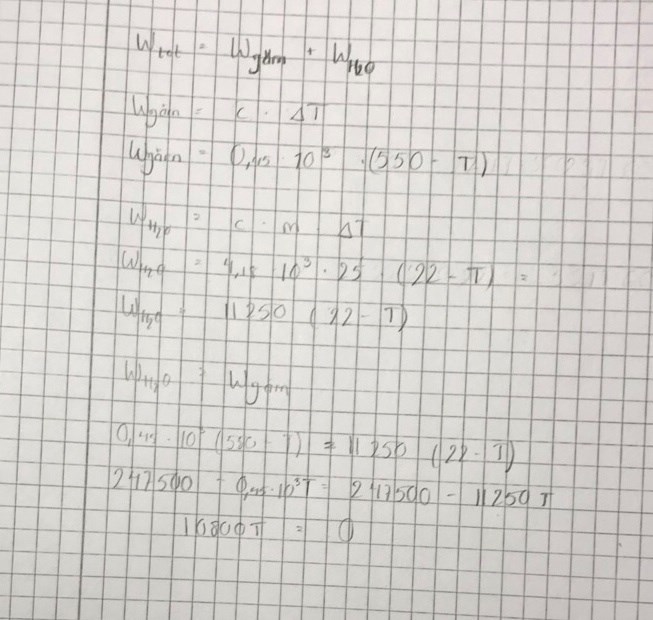 W_tot = W_järn + W_H₂O
W_järn = c · ΔT
W_järn = 0,45 · 10³ · (550 - T)
W_H₂O = c · m · ΔT
W_H₂O = 4,18 · 10³ · 25 · (22 - T) =
W_H₂O = 11250 (22 - T)
W_H₂O = W_järn
0,45 · 10³ (550 - T) = 11250 (22 - T)
247500 - 0,45 · 10³T = 247500 - 11250T
10800T = 0